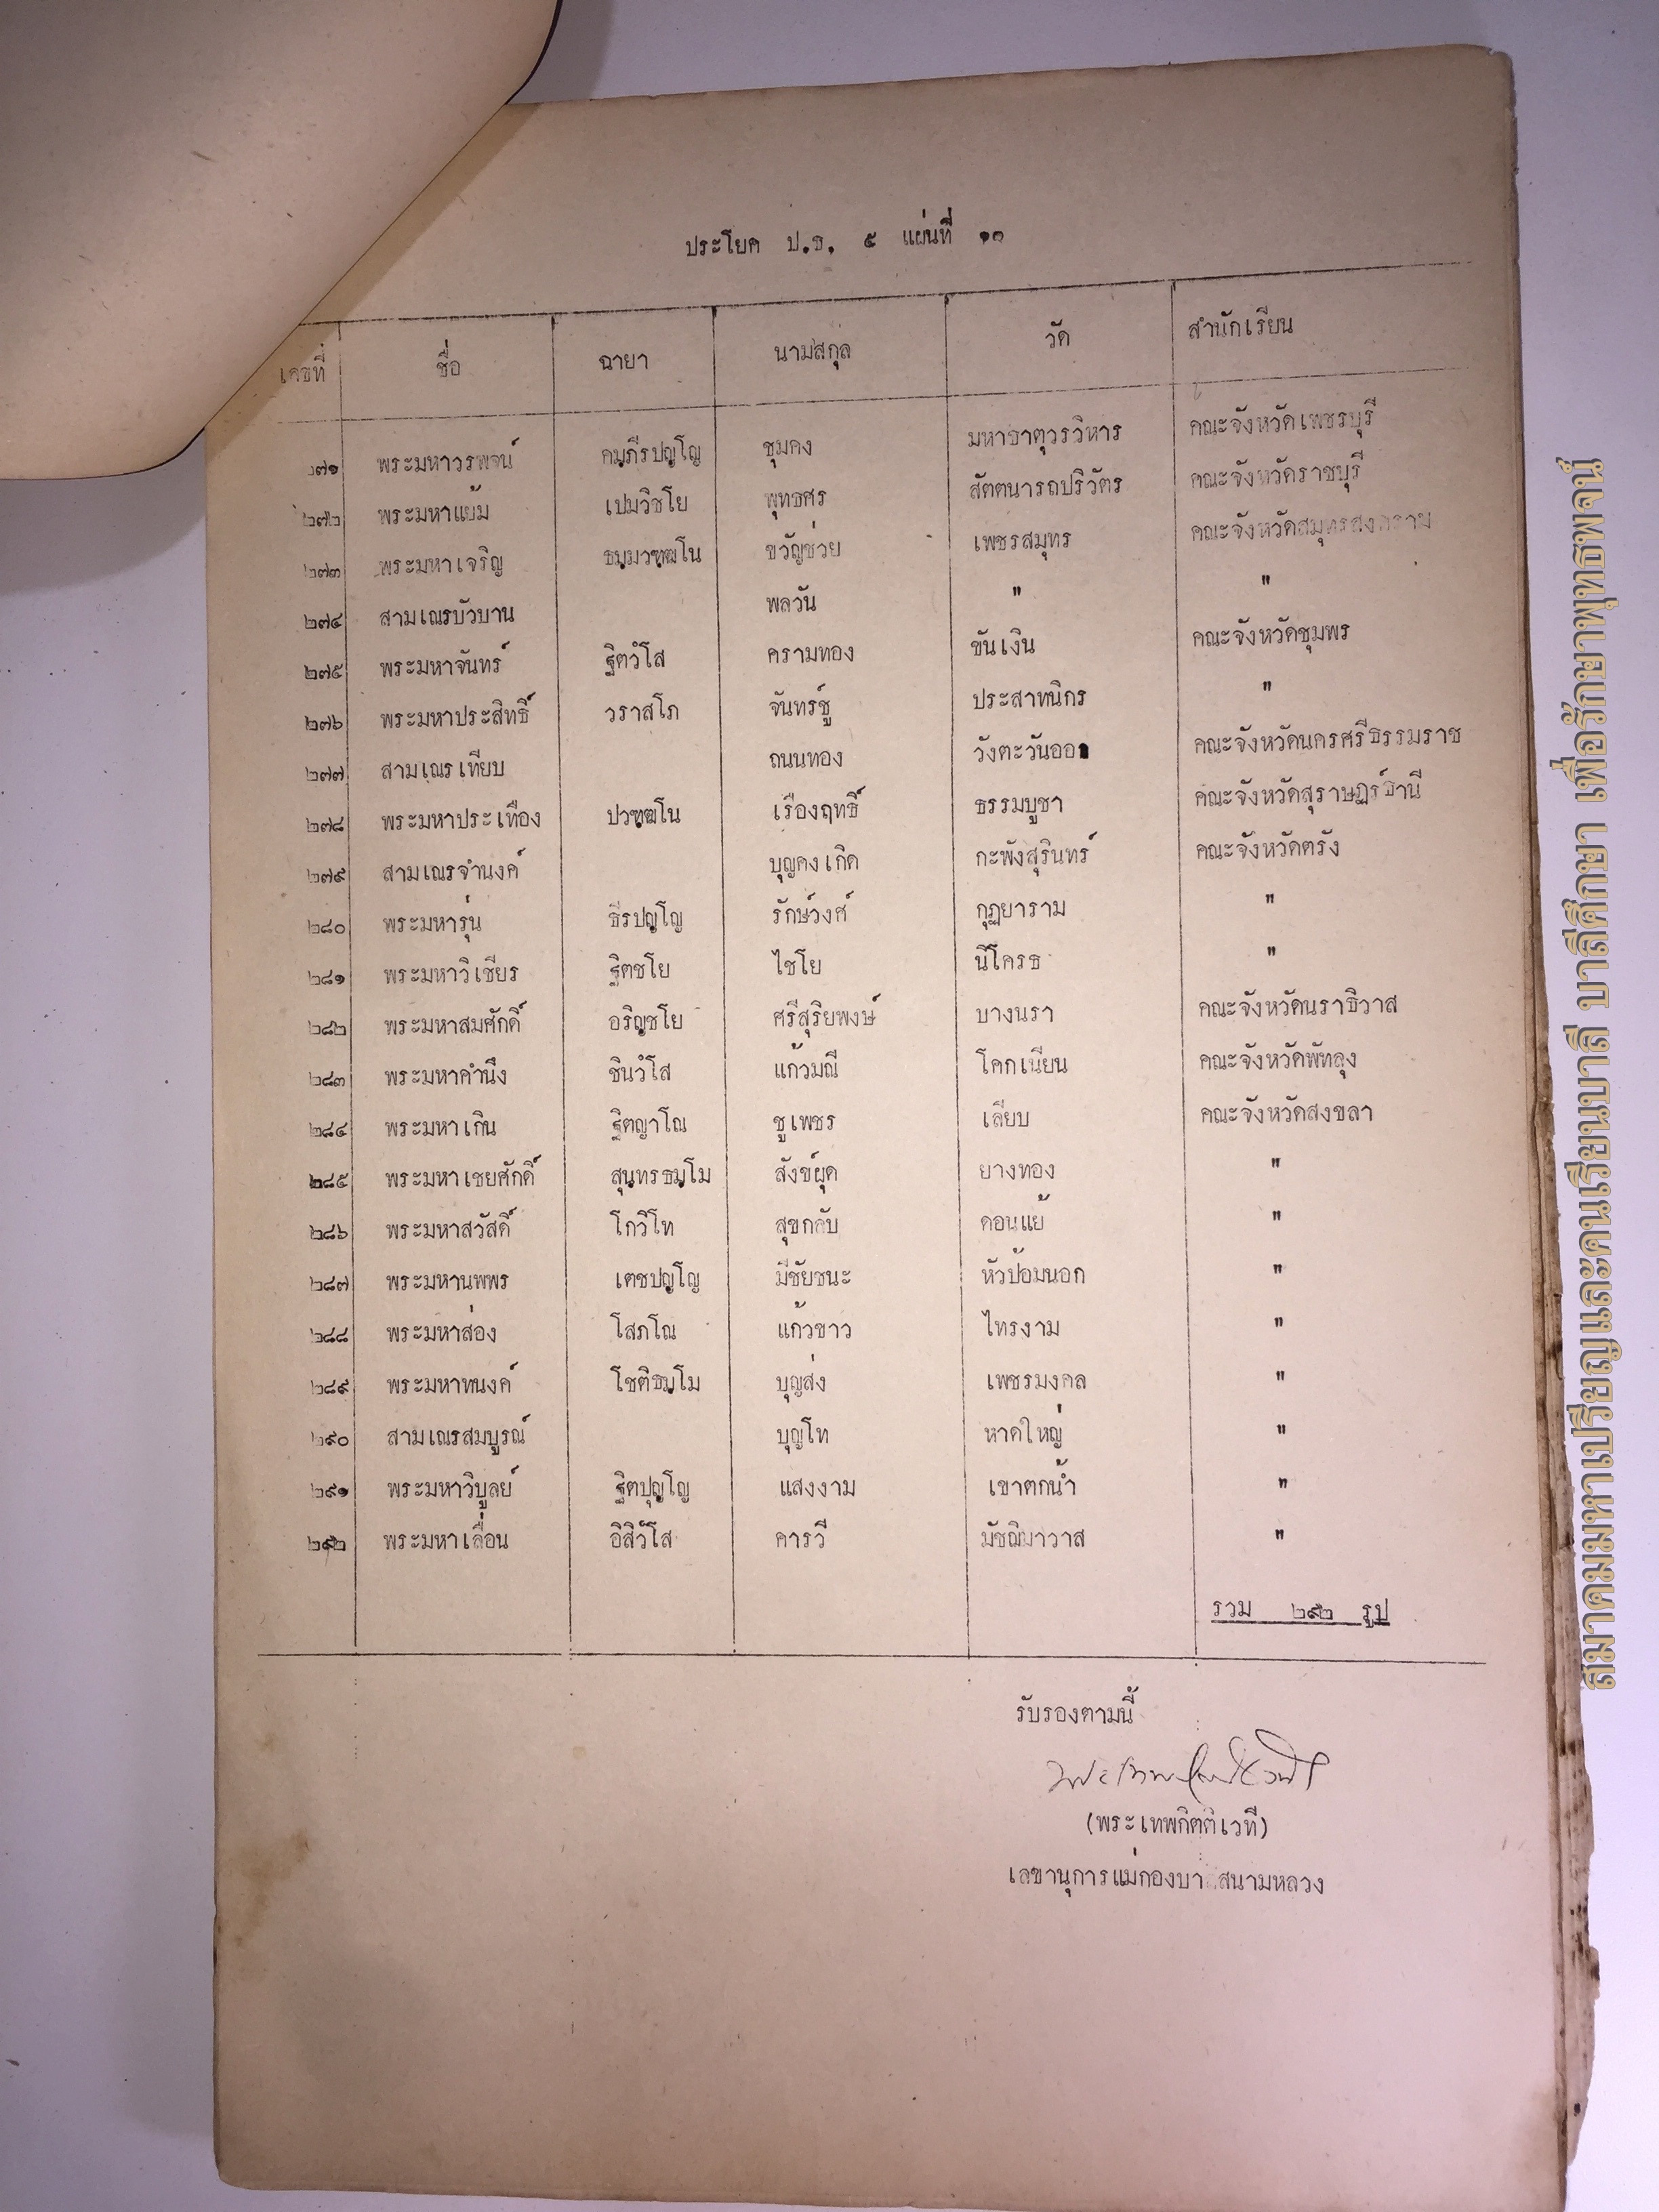 ประโยค ป.ธ. ๕ แผ่นที่
เลขที่ ชื่อ ฉายา นามสกุล วัด สำนักเรียน
๒๗๑ พระมหาวรพจน์ คมฺภีรปญฺโญ ชุมคง มหาธาตุวรวิหาร คณะจังหวัดเพชรบุรี
๒๗๒ พระมหาแย้ม เปมวิชโย พุทธศร สัตตนารถปริวัตร คณะจังหวัดราชบุรี
๒๗๓ พระมหาเจริญ ธมฺมวฑฺฒโน ขวัญช่วย เพชรสมุทร คณะจังหวัดสมุทรสงคราม
๒๗๔ สามเณรบัวบาน พลวัน " "
๒๗๕ พระมหาจันทร์ ฐิตวํโส ครามทอง ขันเงิน คณะจังหวัดชุมพร
๒๗๖ พระมหาประสิทธิ์ วราสโภ จันทร์ชู ประสาทนิกร "
๒๗๗ สามเณรเทียบ ถนนทอง วังตะวันออก คณะจังหวัดนครศรีธรรมราช
๒๗๘ พระมหาประเทือง ปวฑฺฒโน เรืองฤทธิ์ ธรรมบูชา คณะจังหวัดสุราษฎร์ธานี
๒๗๙ สามเณรจำนงค์ บุญคงเกิด กะพังสุรินทร์ คณะจังหวัดตรัง
๒๘๐ พระมหารุ่น ธีรปญฺโญ รักษ์วงศ์ กุฏยาราม "
๒๘๑ พระมหาวิเชียร ฐิตชโย ไชโย นิโครธ "
๒๘๒ พระมหาสมศักดิ์ อริญฺชโย ศรีสุริยพงษ์ บางนรา คณะจังหวัดนราธิวาส
๒๘๓ พระมหาคำนึง ชินวํโส แก้วมณี โคกเนียน คณะจังหวัดพัทลุง
๒๘๔ พระมหาเกิน ฐิตญาโณ ชูเพชร เลียบ คณะจังหวัดสงขลา
๒๘๕ พระมหาเชยศักดิ์ สุนฺทรธมฺโม สังข์ผุด ยางทอง "
๒๘๖ พระมหาสวัสดิ์ โกวิโท สุขกลับ ดอนแย้ "
๒๘๗ พระมหานพพร เตชปญฺโญ มีชัยชนะ หัวป้อมนอก "
๒๘๘ พระมหาส่อง โสภโณ แก้วขาว ไทรงาม "
๒๘๙ พระมหาทนงค์ โชติธมฺโม บุญส่ง เพชรมงคล "
๒๙๐ สามเณรสมบูรณ์ บุญโท หาดใหญ่ "
๒๙๑ พระมหาวิบูลย์ ฐิตปุญฺโญ แสงงาม เขาตกน้ำ "
๒๙๒ พระมหาเลื่อน อิสิวํโส คารวี มัชฌิมาวาส "
รวม ๒๙๒ รูป
รับรองตามนี้
(พระเทพกิตติเวที)
เลขานุการแม่กองบาลีสนามหลวง
สมาคมมหาเปรียญและคนเรียนบาลี บาลีศึกษา เพื่อรักษาพุทธพจน์